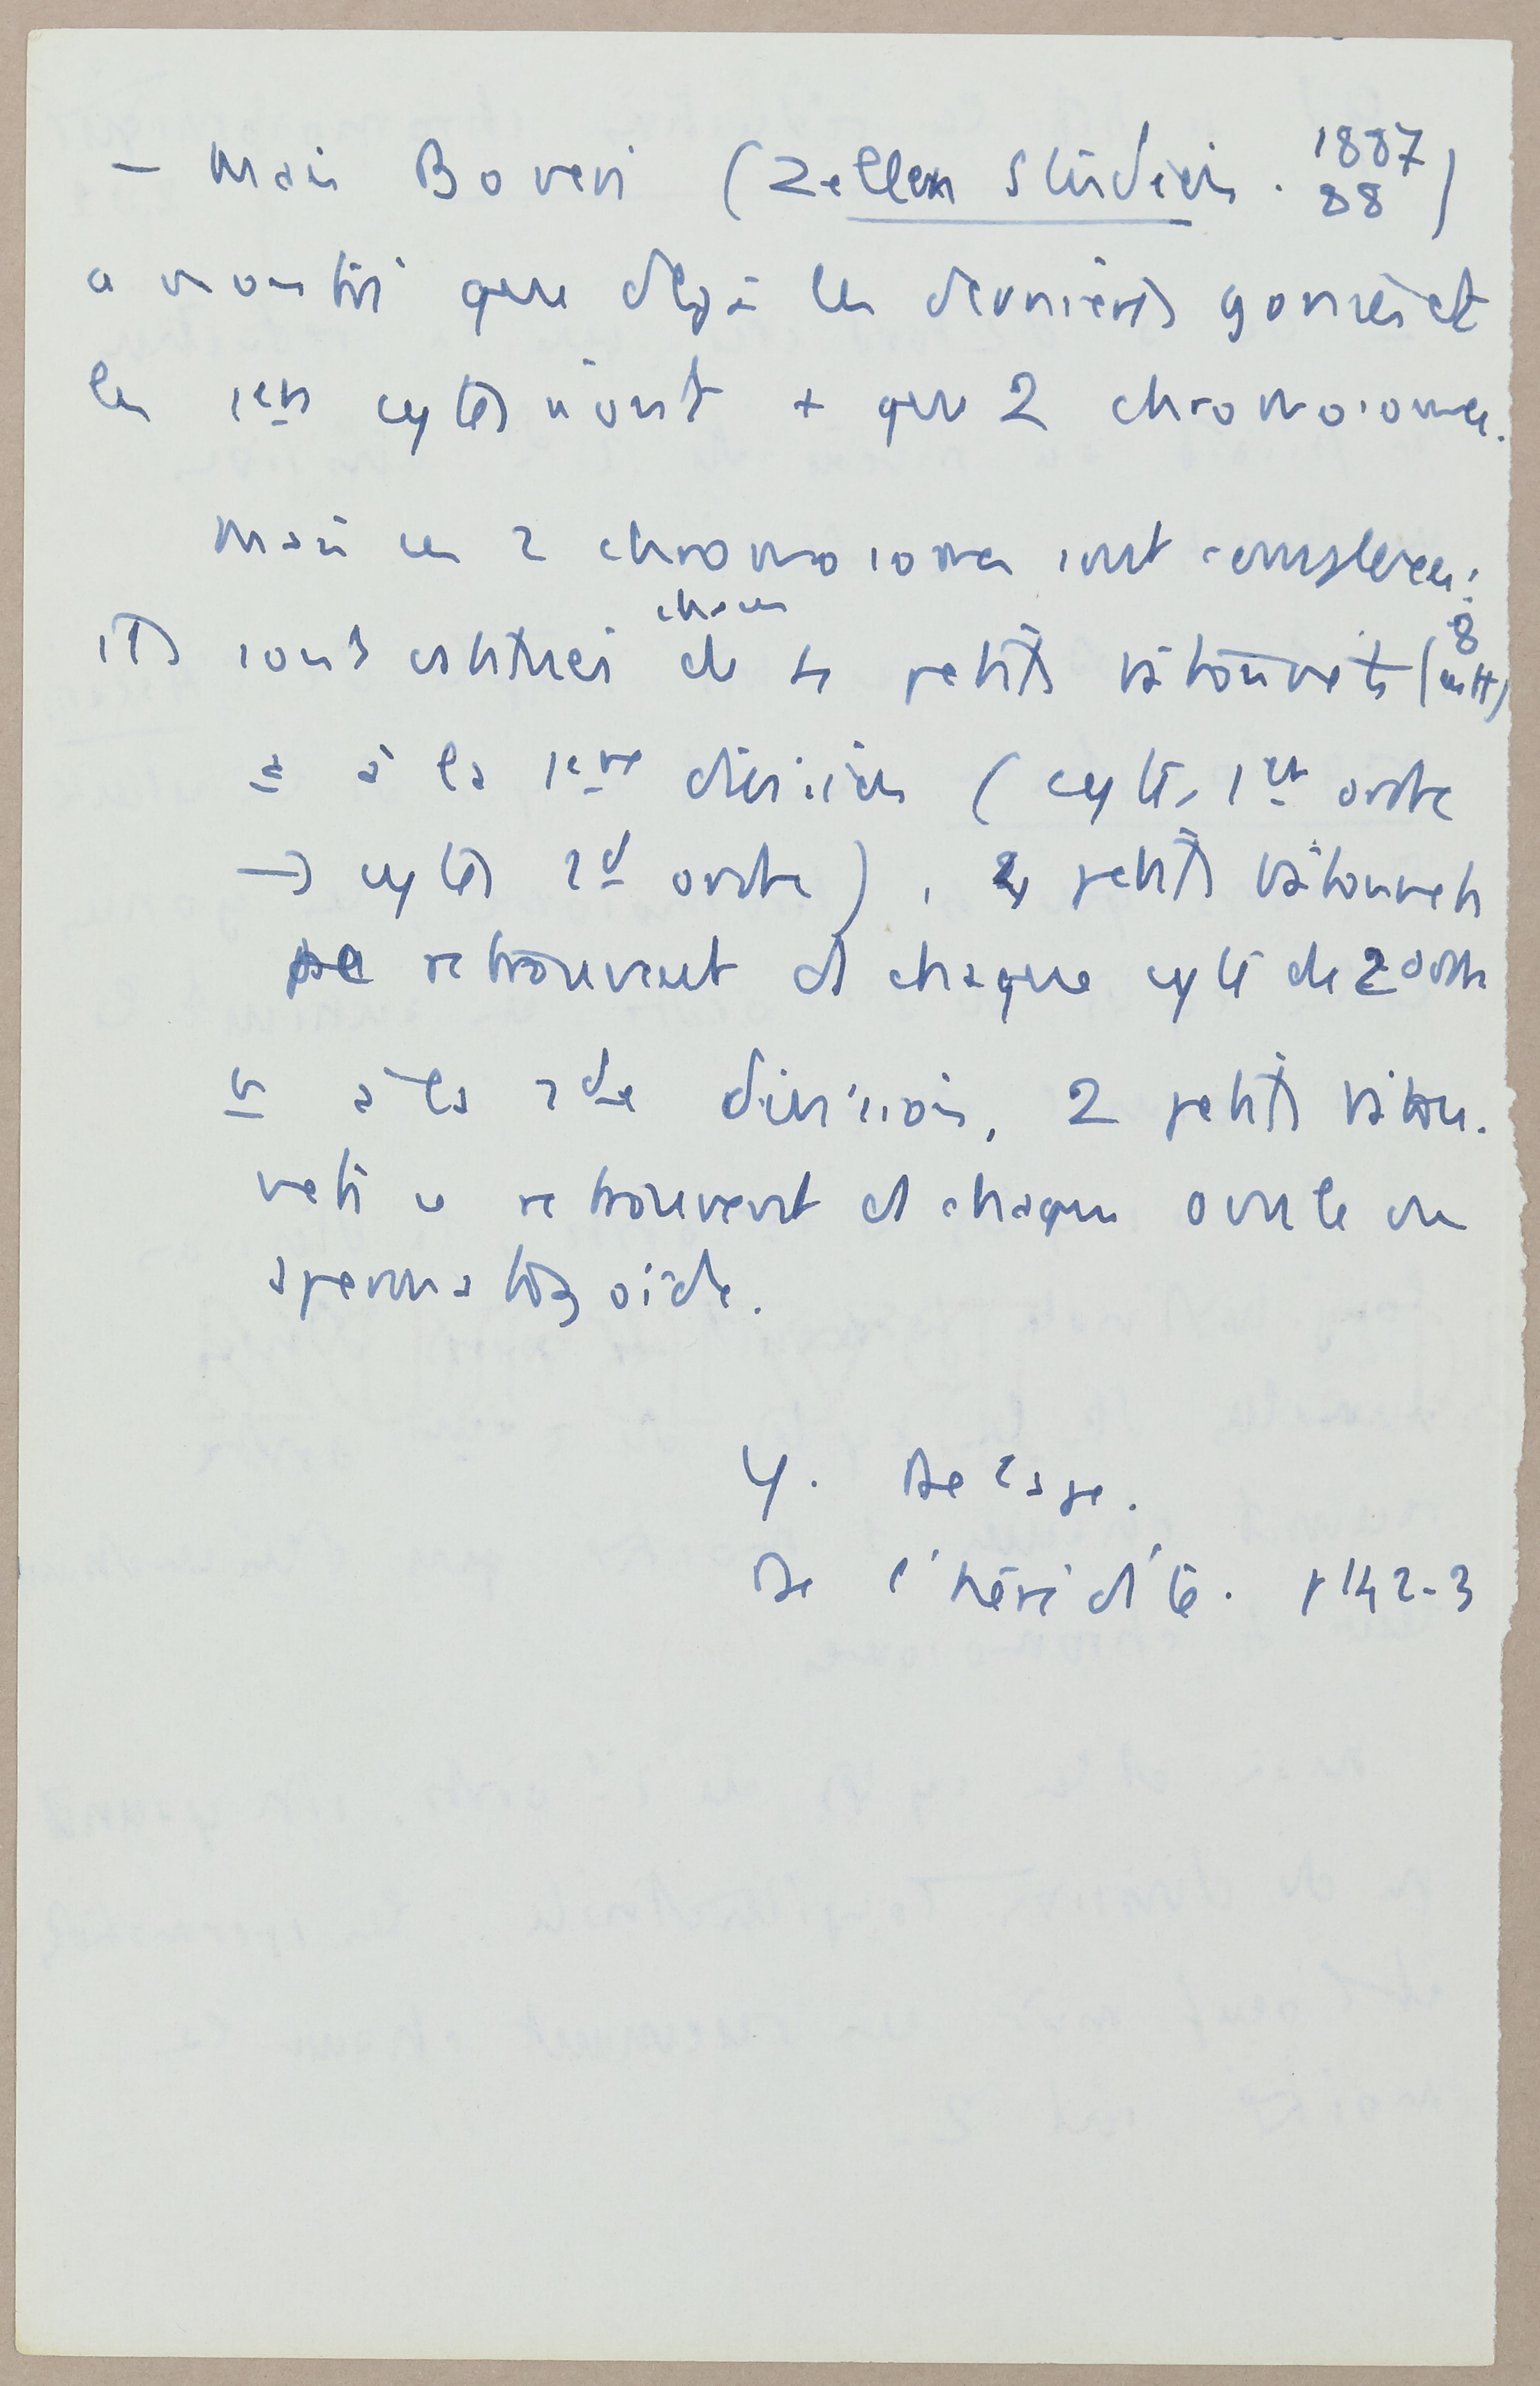 – Mais Boveri (Zellen Studien. 1887
88)
a montré que déjà les dernières gonies et
les 1ers cytes n'ont + que 2 chromosomes.
Mais ces 2 chromosomes sont complexes :
ils sont constitués chacun de 4 petits bâtonnets (8 en tt)
a à la 1ère division (cytes 1er ordre
→ cytes 2d ordre), 4 petits bâtonnets
se retrouvent ds chaque cyte de 2 ordre
b à la 2de division, 2 petits bâton-
nets se retrouvent ds chaque ovule ou
spermatozoïde.
Y. Delage.
De l'hérédité. p 142-3